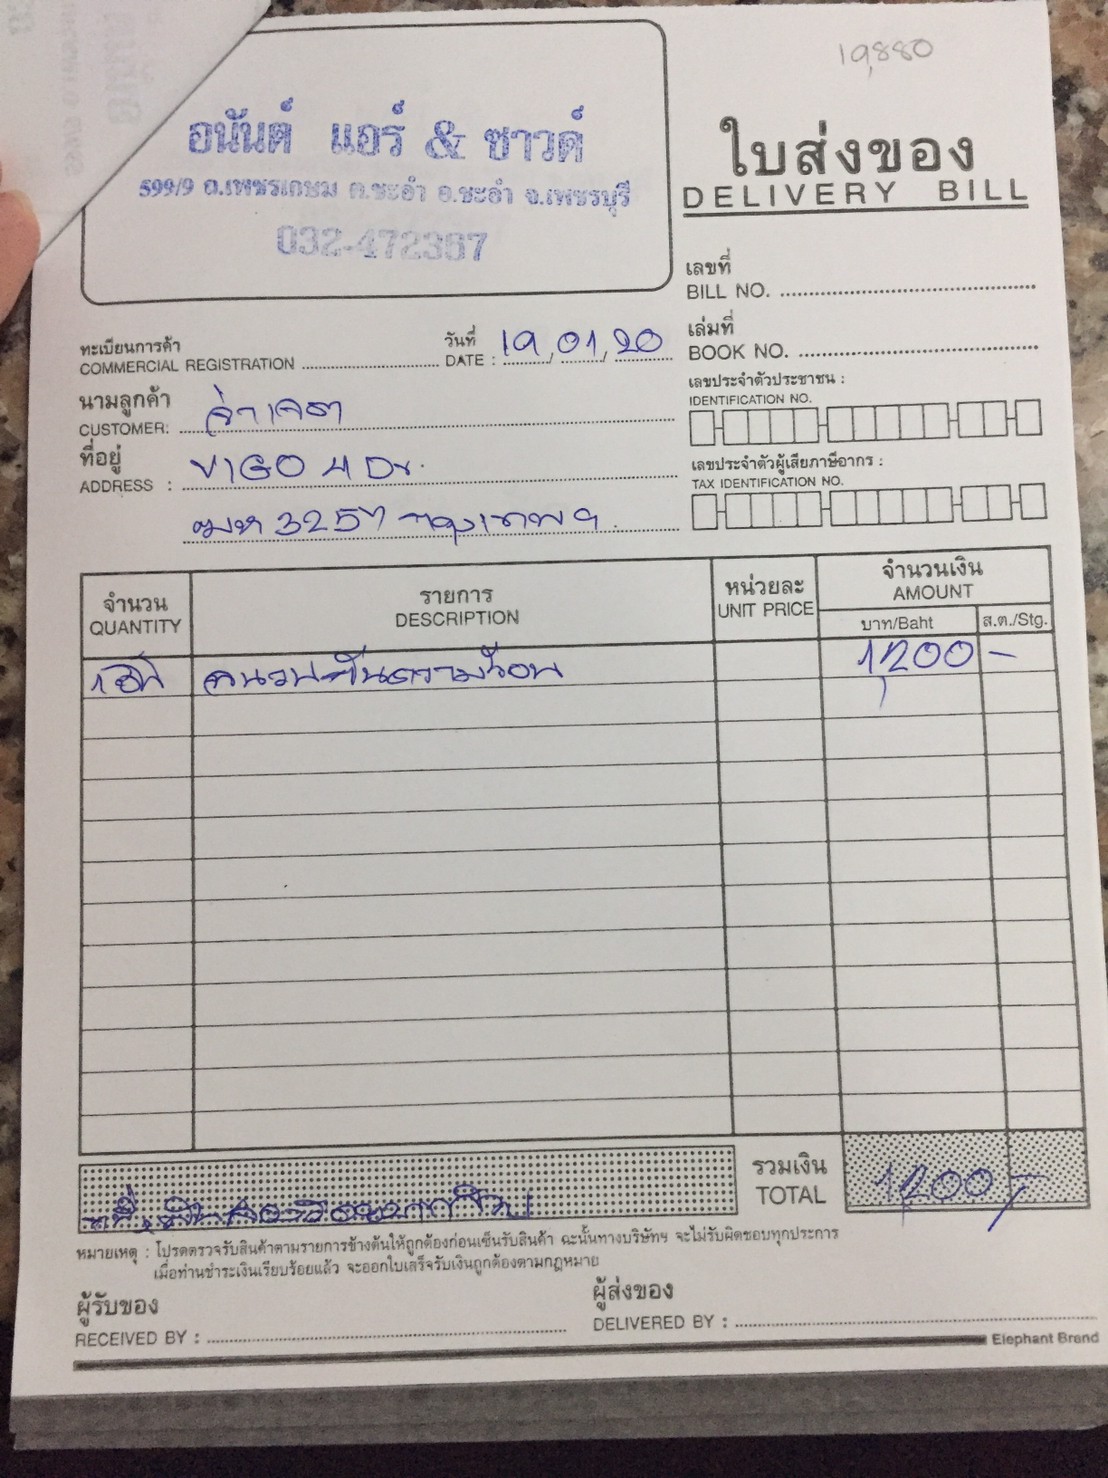 19,880
อนันต์ แอร์ & ซาวด์
599/9 ถ.เพชรเกษม ต.ชะอำ อ.ชะอำ จ.เพชรบุรี
032-472367
ใบส่งของ
DELIVERY BILL
เลขที่
BILL NO.
เล่มที่
BOOK NO.
ทะเบียนการค้า
COMMERCIAL REGISTRATION
วันที่
DATE : 19/01/20
นามลูกค้า
CUSTOMER:
ที่อยู่
ADDRESS : VIGO 4 Dr.
3257 กรุงเทพฯ
เลขประจำตัวประชาชน :
IDENTIFICATION NO.
เลขประจำตัวผู้เสียภาษีอากร :
TAX IDENTIFICATION NO.
จำนวน รายการ หน่วยละ จำนวนเงิน
QUANTITY DESCRIPTION UNIT PRICE AMOUNT
บาท/Baht ส.ต./Stg.
1 ฉนวนกันความร้อน 1,200 -
รวมเงิน
TOTAL 1,200 -
หมายเหตุ : โปรดตรวจรับสินค้าตามรายการข้างต้นให้ถูกต้องก่อนเซ็นรับสินค้า ฉะนั้นทางบริษัทฯ จะไม่รับผิดชอบทุกประการ
เมื่อท่านชำระเงินเรียบร้อยแล้ว จะออกใบเสร็จรับเงินถูกต้องตามกฎหมาย
ผู้รับของ
RECEIVED BY :
ผู้ส่งของ
DELIVERED BY :
Elephant Brand